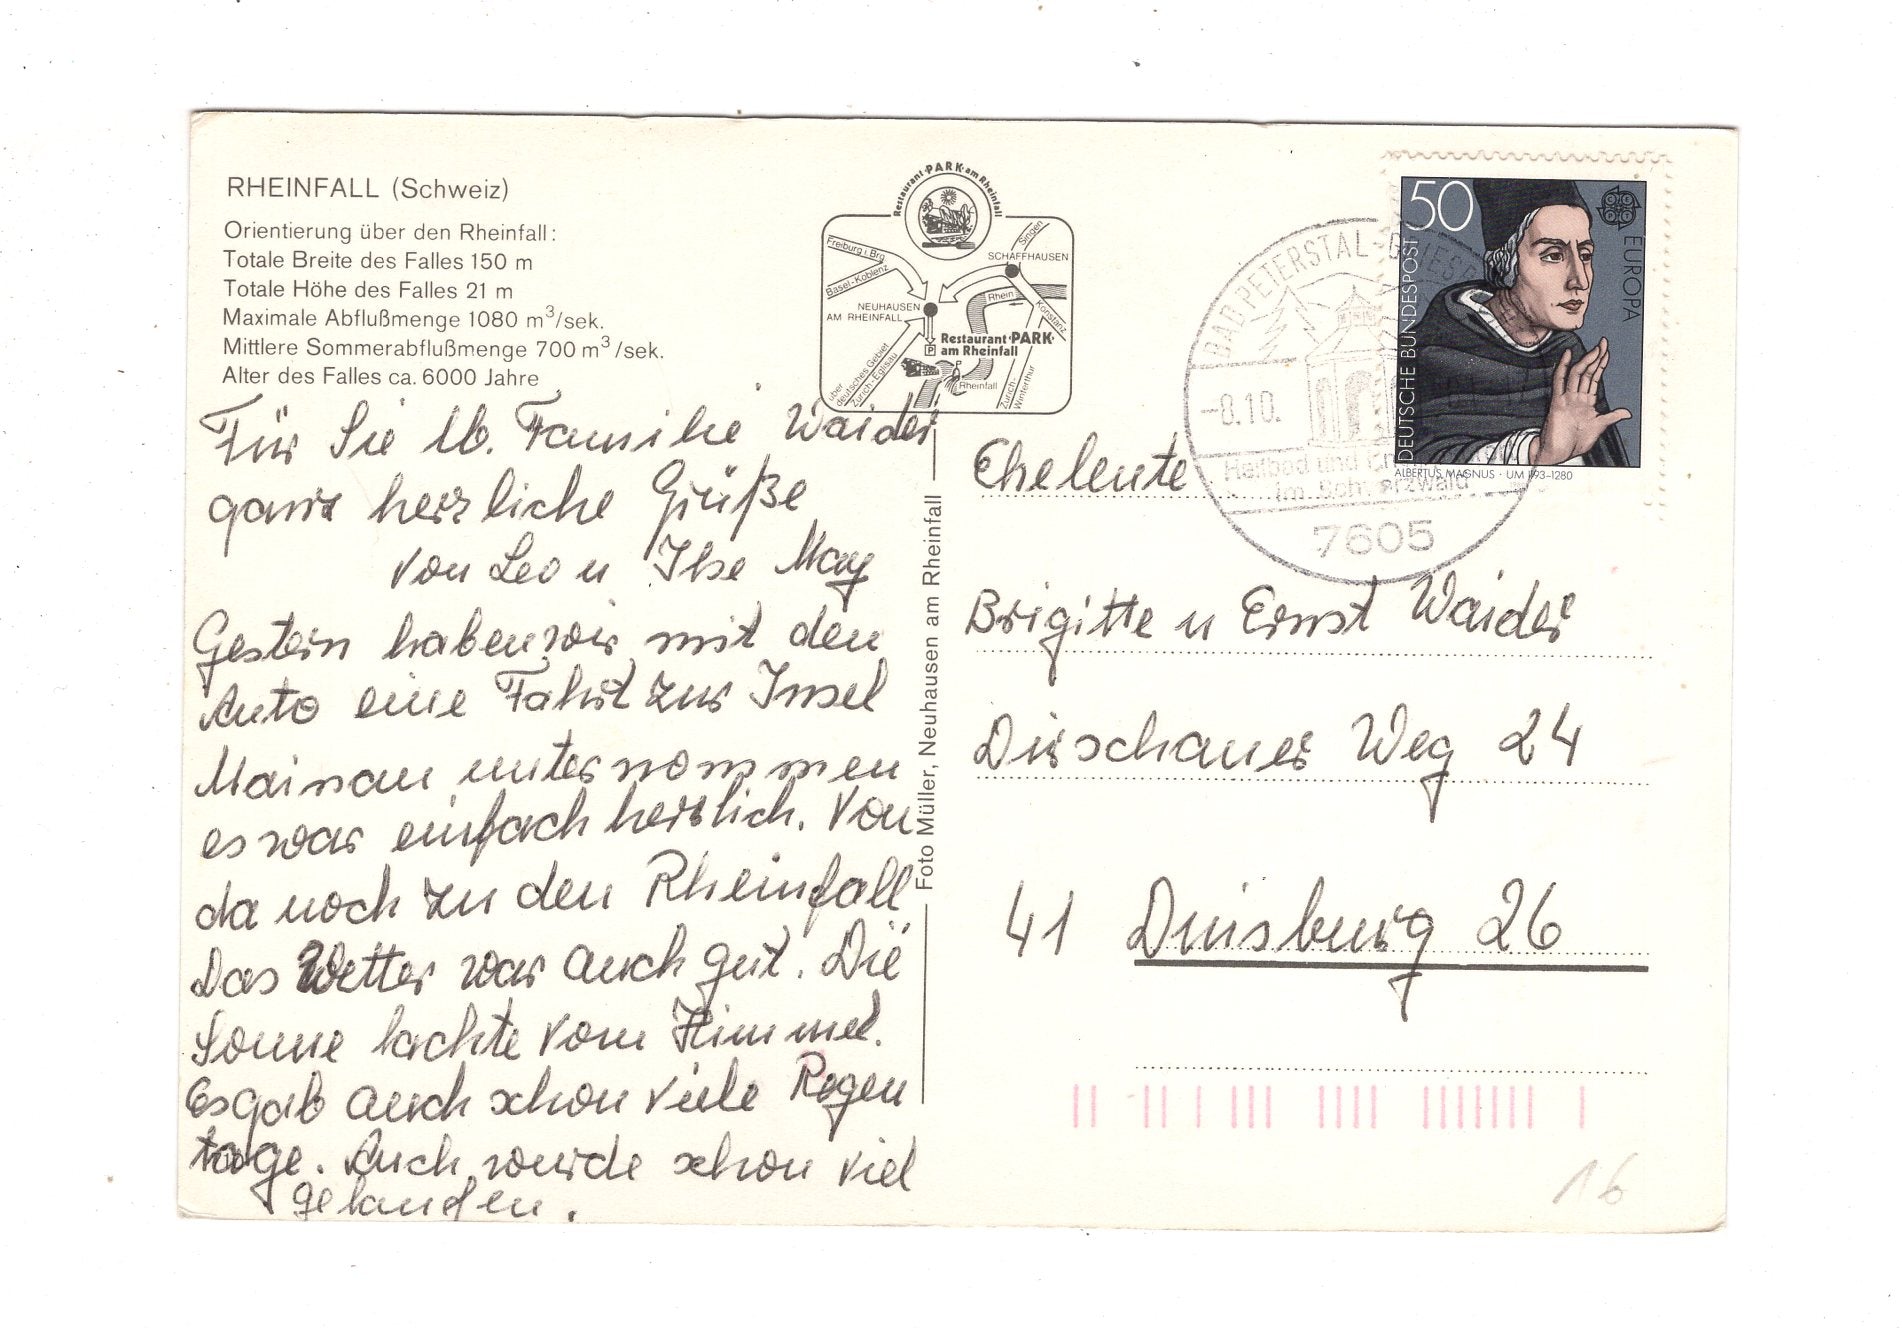 RHEINFALL (Schweiz)
Orientierung über den Rheinfall:
Totale Breite des Falles 150 m
Totale Höhe des Falles 21 m
Maximale Abflußmenge 1080 m³/sek.
Mittlere Sommerabflußmenge 700 m³/sek.
Alter des Falles ca. 6000 Jahre
Für Sie lb. Familie Waider
ganz herzliche Grüße
von Leo u Ilse May
Gestern haben wir mit den
Auto eine Fahrt zur Insel
Mainau unternommen
es war einfach herrlich. Von
da noch zu den Rheinfall
Das Wetter war auch gut. Die
Sonne lachte vom Himmel.
Es gab auch schon viele Regen
tage. Auch wurde schon viel
gelaufen.
Restaurant PARK am Rheinfall
Freiburg i Brg
Basel-Koblenz
Singen
SCHAFFHAUSEN
NEUHAUSEN
AM RHEINFALL
Rhein
Konstanz
Restaurant PARK
am Rheinfall
P
über
deutsches Gebiet
Zürich-Eglisau
Rheinfall
Zürich-
Winterthur
Foto Müller, Neuhausen am Rheinfall
BAD PETERSTAL-GRIESB
-8.10.
Heilbad und
im Schwarzwald
7605
50
DEUTSCHE BUNDESPOST
EUROPA
ALBERTUS MAGNUS · UM 1193-1280
Eheleute
Brigitte u Ernst Waider
Dirschauer Weg 24
41 Duisburg 26
16